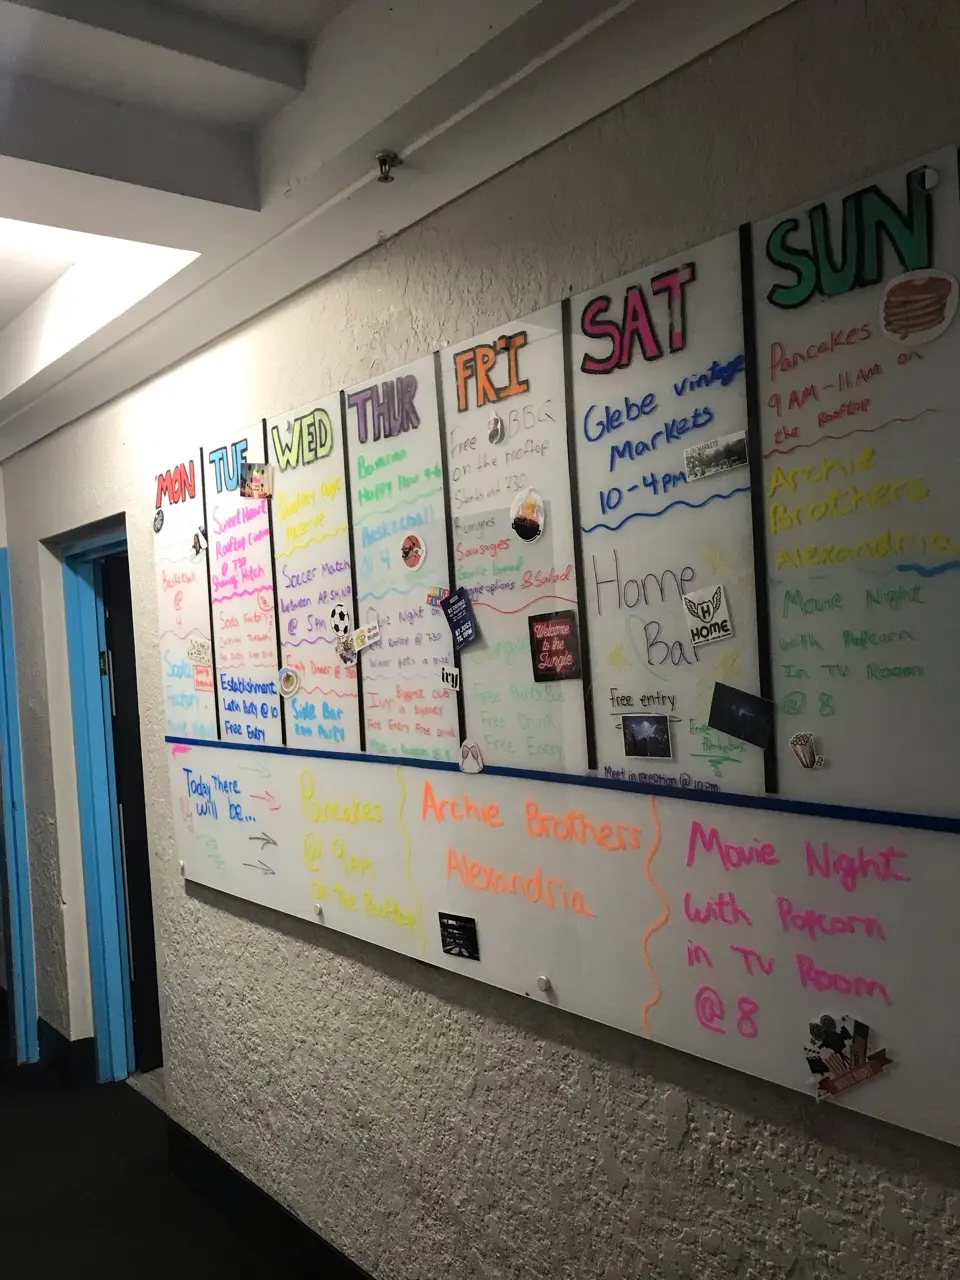 MON
Basketball
@
4
Soda
Factory
TUE
Sweetheart
Rooftop
@ 730
Soda Factory
Establishment
Latin Party @ 10
Free Entry
WED
Dudley Page
Reserve
Soccer Match
between
@ 5PM
Family Dinner @
Side Bar
Party
THUR
Bavarian
Happy Hour 4-6
Basketball
@ 4
Night on
the Rooftop @ 730
Winner gets a prize
Ivy
Biggest club
in Sydney
Free Entry Free Drink
FRI
Free BBQ
on the rooftop
Starts at 730
Burgers
Sausages
Garlic bread
Veggie options & Salad
Welcome
to the
Jungle
Free Party Bus
Free Drink
Free Entry
SAT
Glebe vintage
Markets
10-4pm
Home
Bar
HOME
Free entry
Free
Partybus
Meet in reception @ 10pm
SUN
Pancakes
9AM-11AM on
the Rooftop
Archie
Brothers
Alexandria
Movie Night
with Popcorn
In TV Room
@ 8
Today There
will be...
Pancakes
@ 9AM
on the Rooftop
Archie Brothers
Alexandria
Movie Night
with Popcorn
in TV Room
@ 8